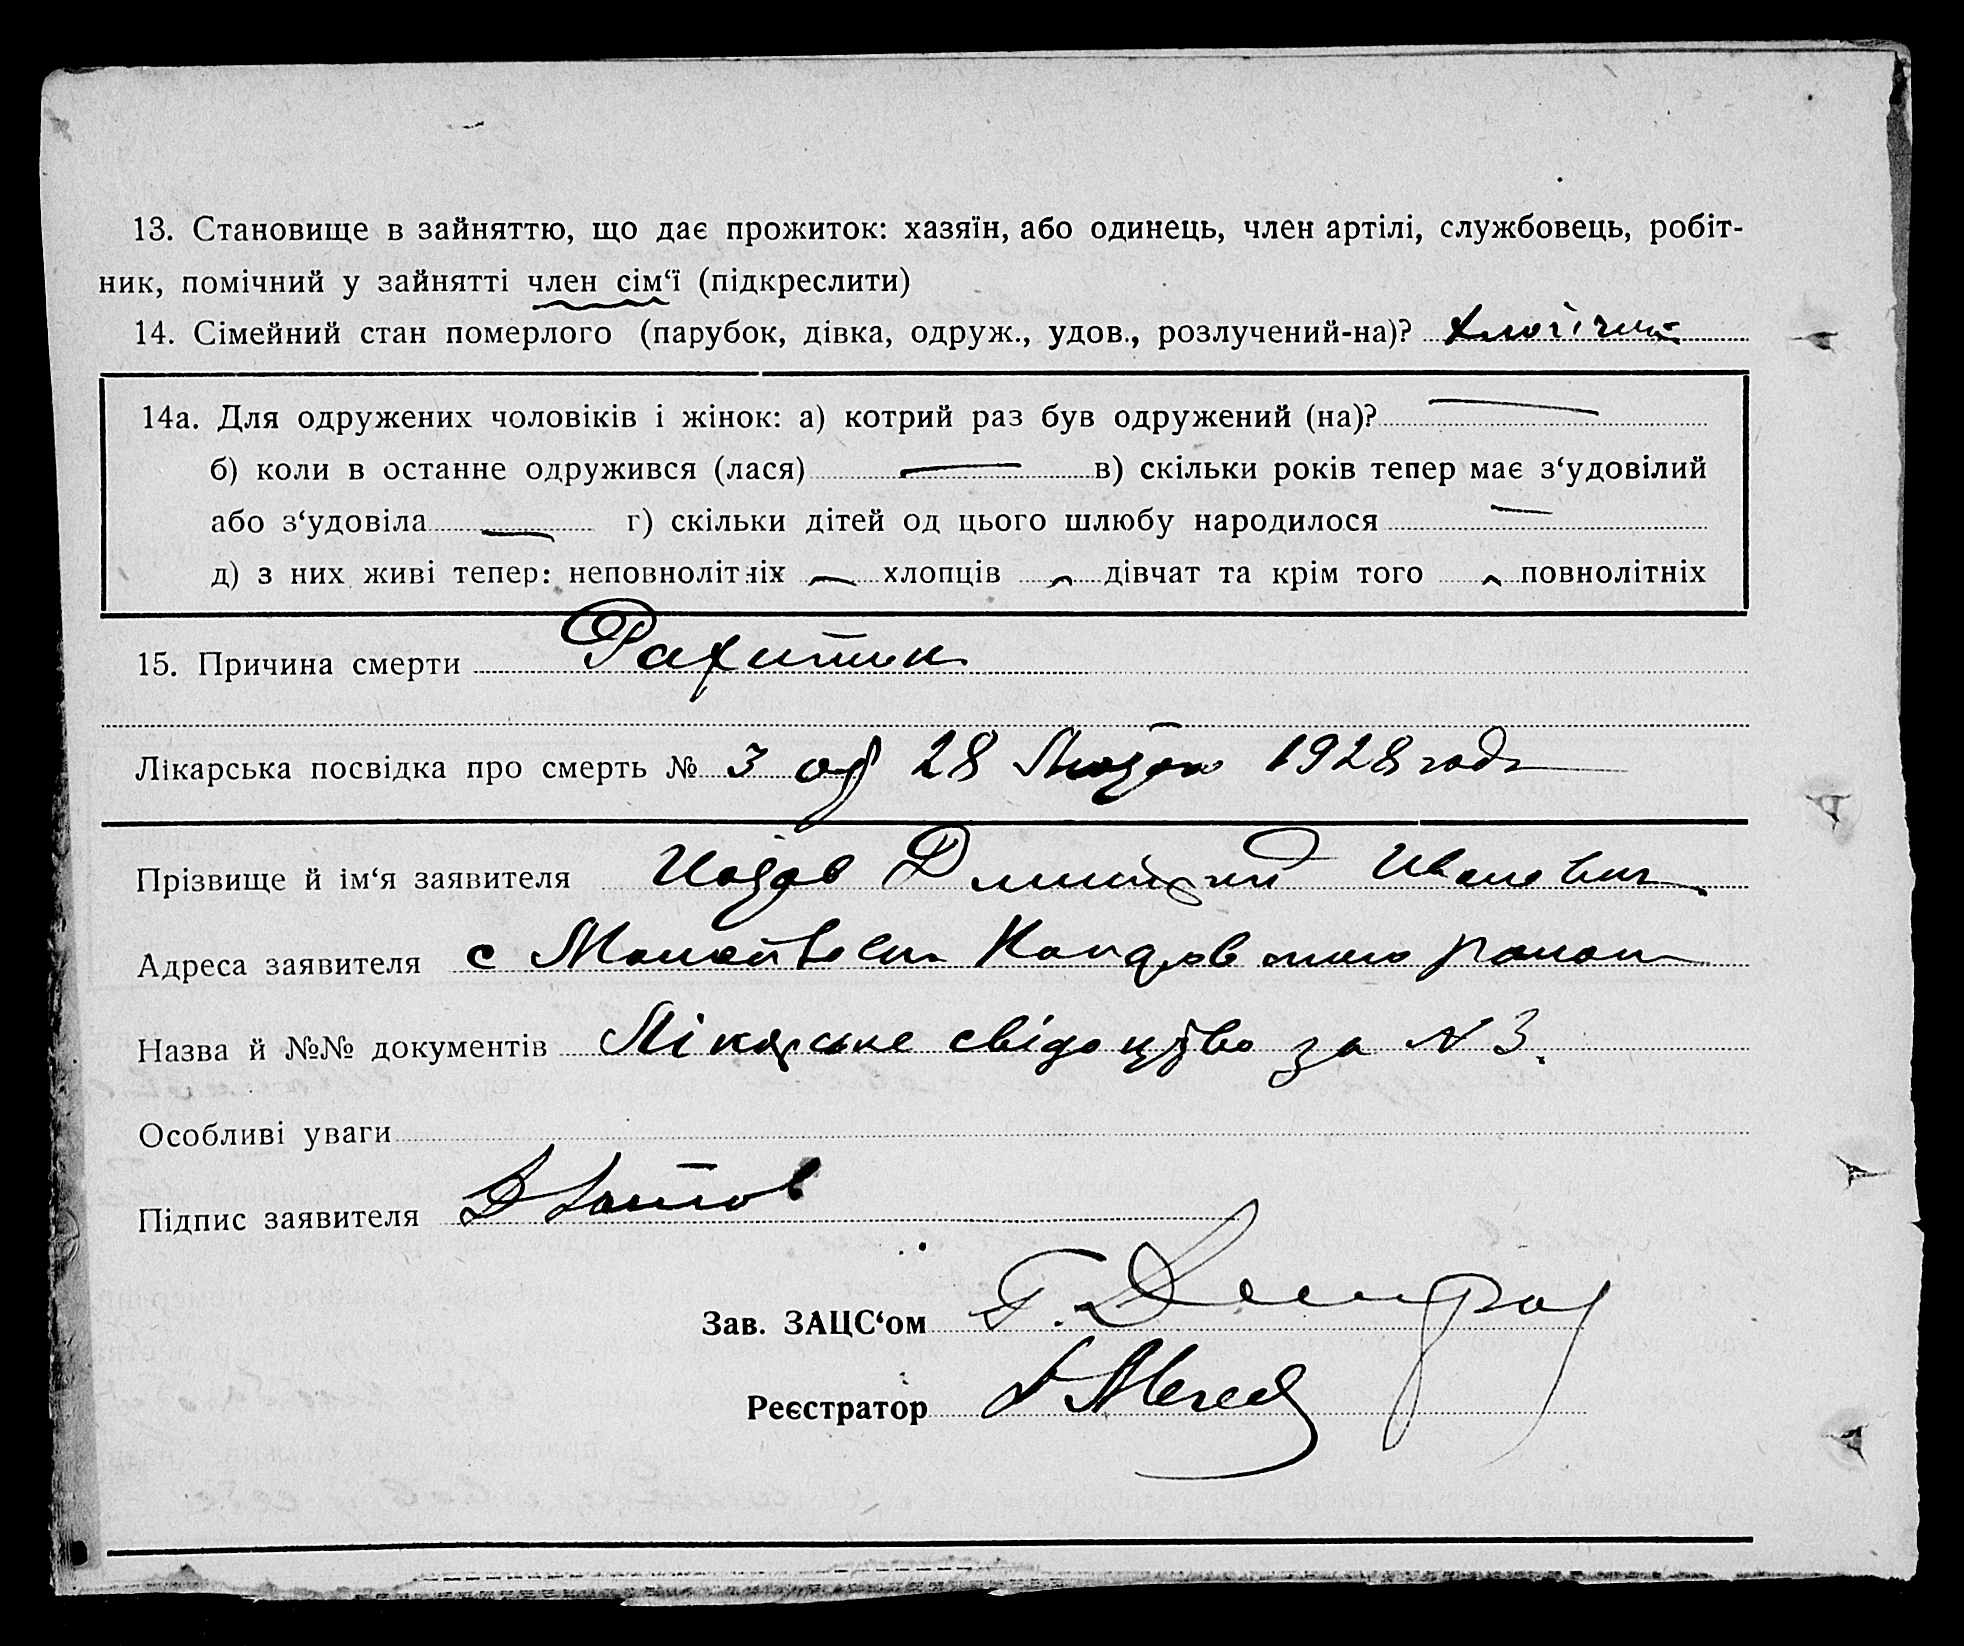 13. Становище в зайняттю, що дає прожиток: хазяїн, або одинець, член артілі, службовець, робіт-
ник, помічний у зайнятті член сім‘ї (підкреслити)
14. Сімейний стан померлого (парубок, дівка, одруж., удов., розлучений-на)?
14а. Для одружених чоловіків і жінок: а) котрий раз був одружений (на)? —
б) коли в останне одружився (лася) — в) скільки років тепер має з‘удовілий
або з‘удовіла — г) скільки дітей од цього шлюбу народилося —
д) з них живі тепер: неповнолітніх — хлопців — дівчат та крім того — повнолітніх
15. Причина смерти Рахитик
Лікарська посвідка про смерть № 3 од 28 Лютого 1928 года
Прізвище й ім‘я заявителя Дмитрий Иванович
Адреса заявителя с
Назва й №№ документів Лікарське свідоцтво за N 3.
Особливі уваги
Підпис заявителя
Зав. ЗАЦС‘ом Г.
Реєстратор